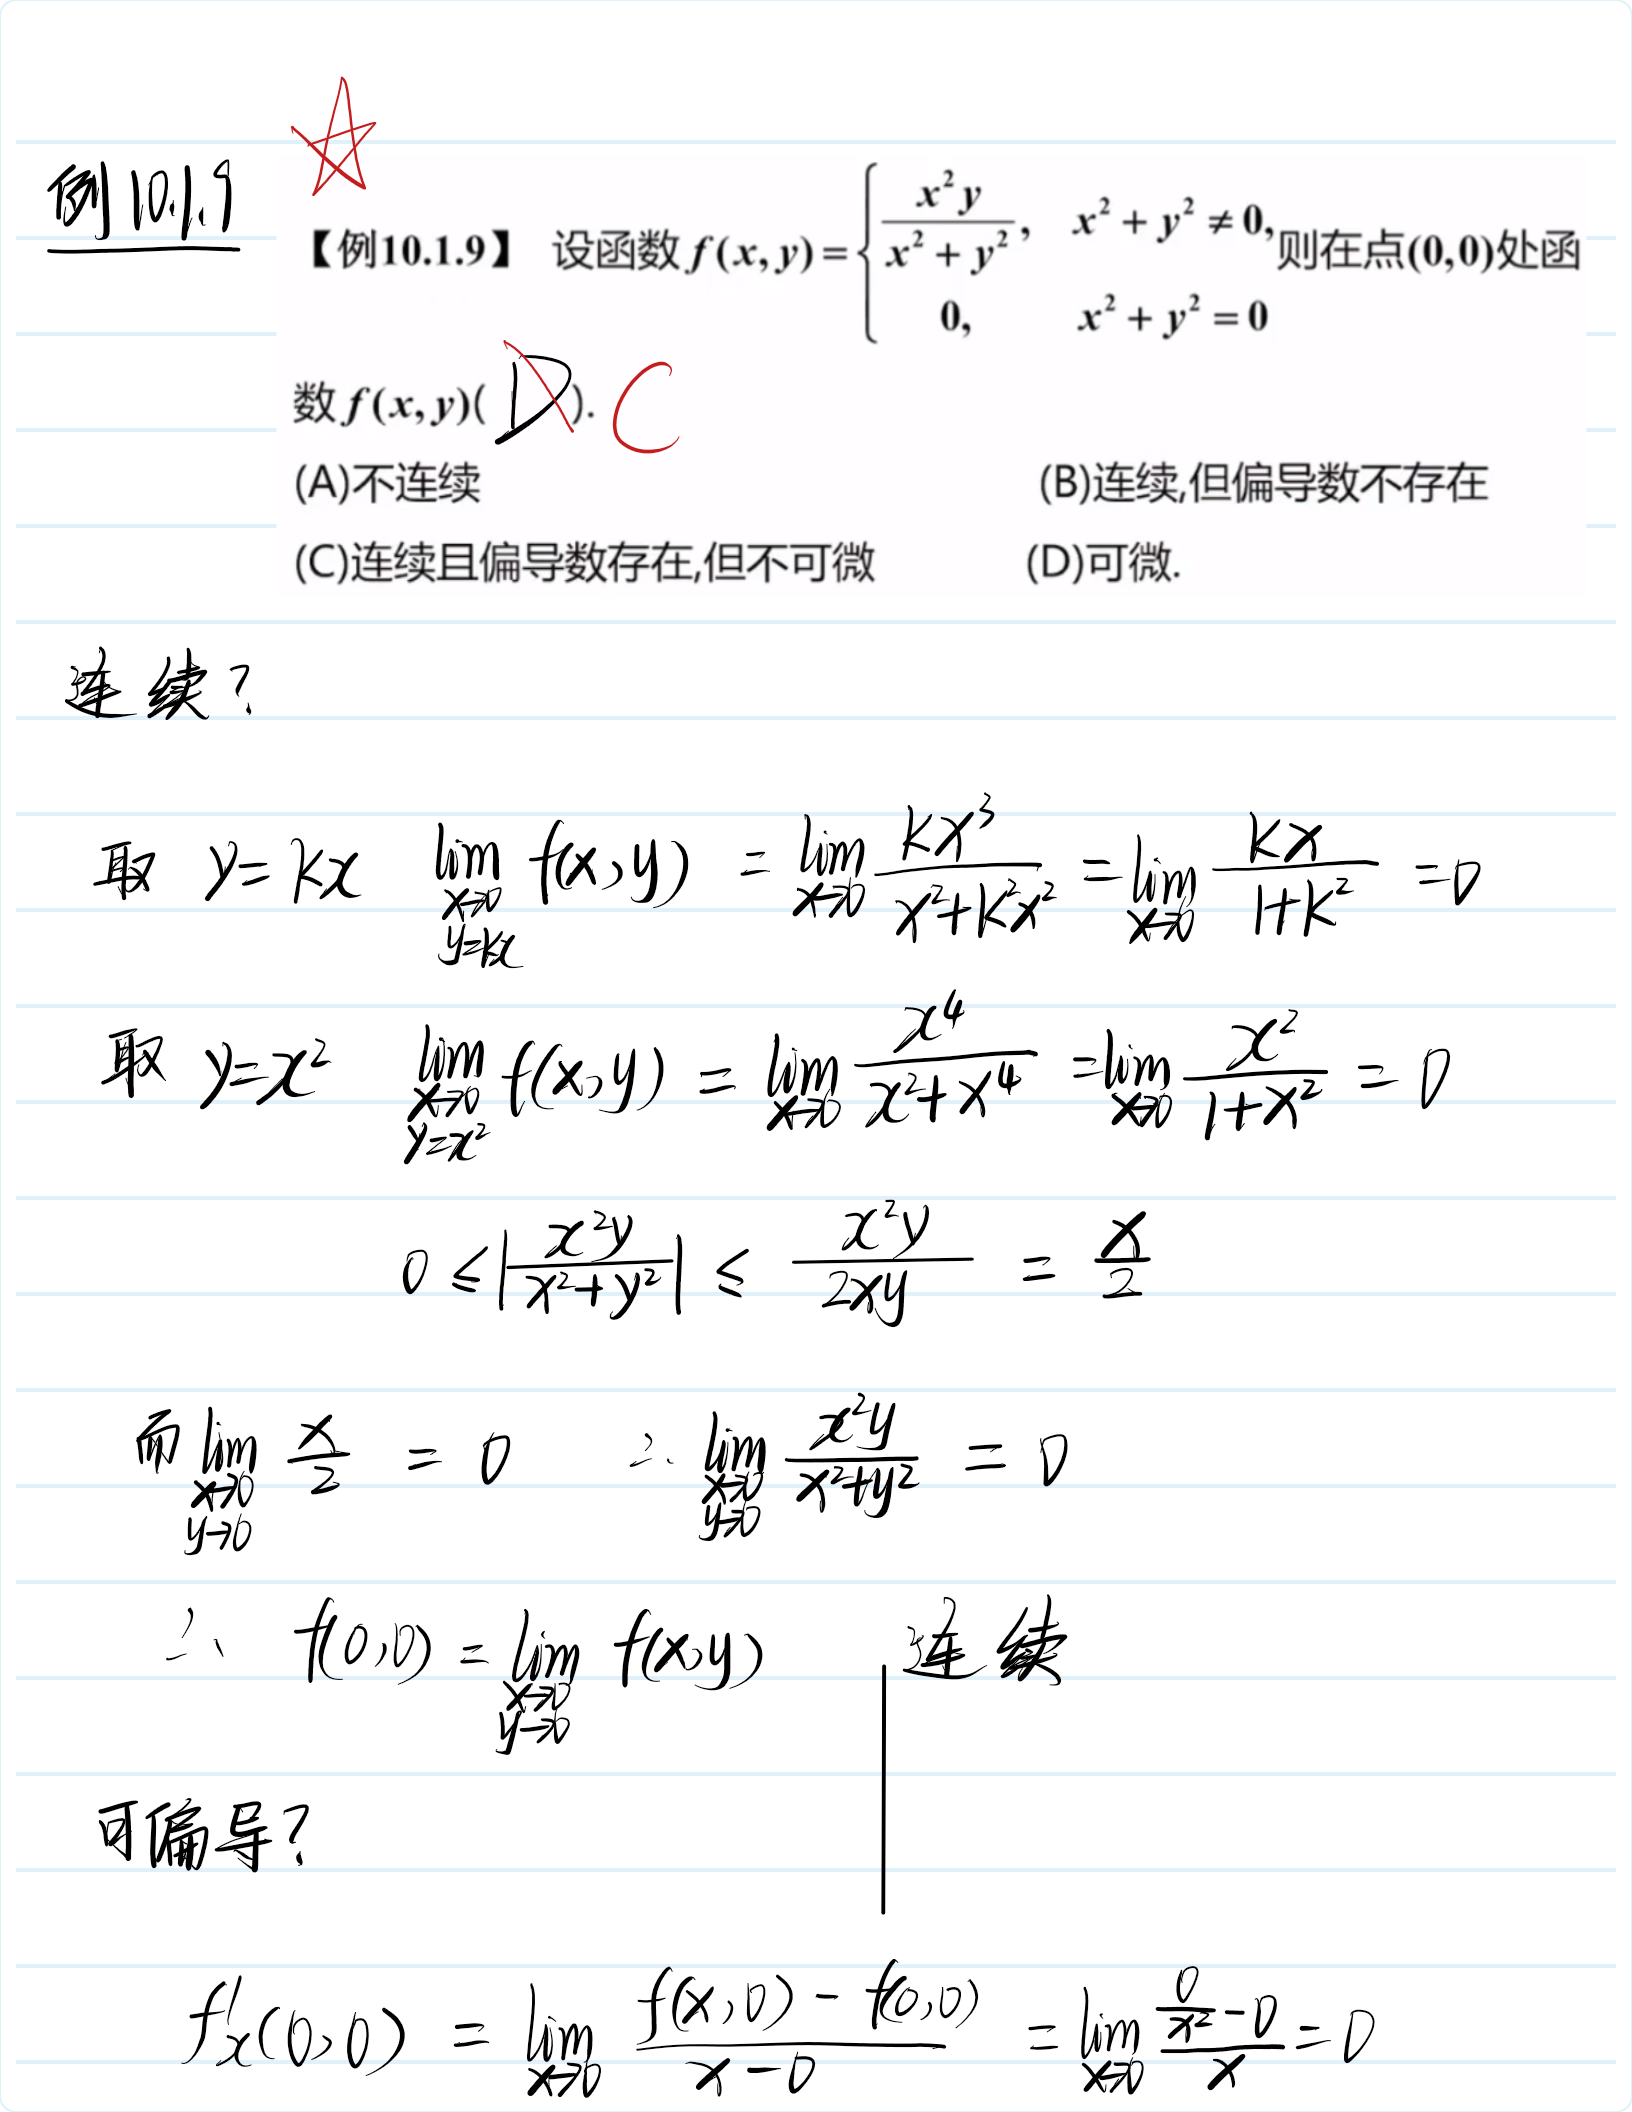 例10.1.9
【例10.1.9】 设函数 f(x, y) = { x²y / (x² + y²), x² + y² ≠ 0, 则在点(0,0)处函
0, x² + y² = 0
数 f(x, y)( D ). C
(A)不连续 (B)连续,但偏导数不存在
(C)连续且偏导数存在,但不可微 (D)可微.
连续?
取 y=kx lim_{x→0, y=kx} f(x,y) = lim_{x→0} kx³/(x²+k²x²) = lim_{x→0} kx/(1+k²) = 0
取 y=x² lim_{x→0, y=x²} f(x,y) = lim_{x→0} x⁴/(x²+x⁴) = lim_{x→0} x²/(1+x²) = 0
0 ≤ |x²y/(x²+y²)| ≤ x²y/(2xy) = x/2
而 lim_{x→0, y→0} x/2 = 0 ∴ lim_{x→0, y→0} x²y/(x²+y²) = 0
∴ f(0,0) = lim_{x→0, y→0} f(x,y) 连续
可偏导?
f'x(0,0) = lim_{x→0} (f(x,0) - f(0,0))/(x-0) = lim_{x→0} (0/x² - 0)/x = 0